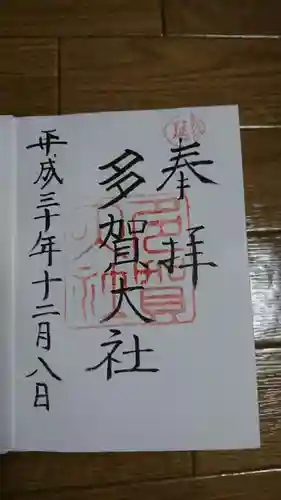 奉拝
多賀大社
平成三十年十二月八日